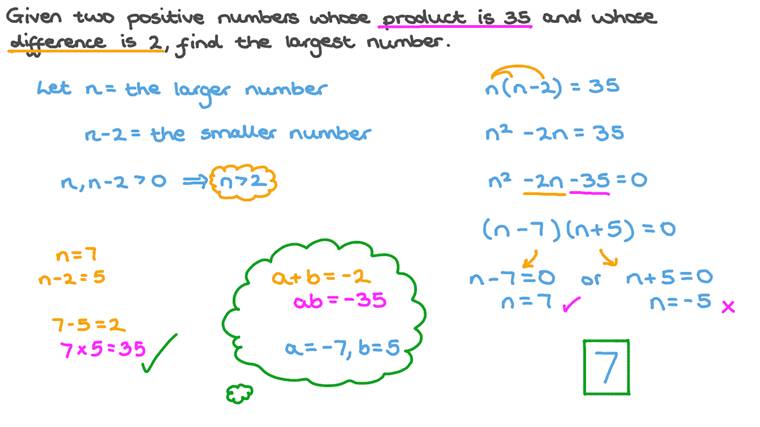 Given two positive numbers whose product is 35 and whose
difference is 2, find the largest number.
Let n = the larger number
n-2 = the smaller number
n, n-2 > 0 ⇒ n>2
n=7
n-2=5
7-5=2
7×5=35 ✓
a+b=-2
ab=-35
a=-7, b=5
n(n-2)=35
n² -2n=35
n² -2n -35=0
(n-7)(n+5)=0
n-7=0 or n+5=0
n=7 ✓ n=-5 ×
7